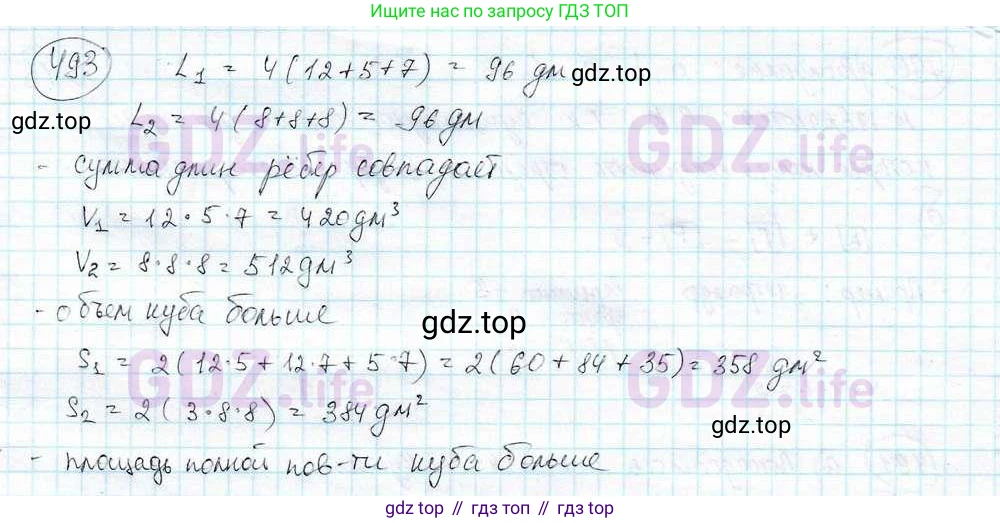 Ищите нас по запросу ГДЗ ТОП
493 L₁ = 4(12+5+7) = 96 дм
gdz.top
gdz.top L₂ = 4(8+8+8) = 96 дм
GDZ.life GDZ.life
- сумма длин рёбер совпадает
V₁ = 12·5·7 = 420 дм³
V₂ = 8·8·8 = 512 дм³
- объем куба больше
gdz.top
S₁ = 2(12·5+12·7+5·7) = 2(60+84+35) = 358 дм²
GDZ.life GDZ.life
S₂ = 2(3·8·8) = 384 дм²
gdz.top
- площадь полной пов-ти куба больше
gdz.top
gdz.top // гдз.топ // gdz.top // гдз.топ